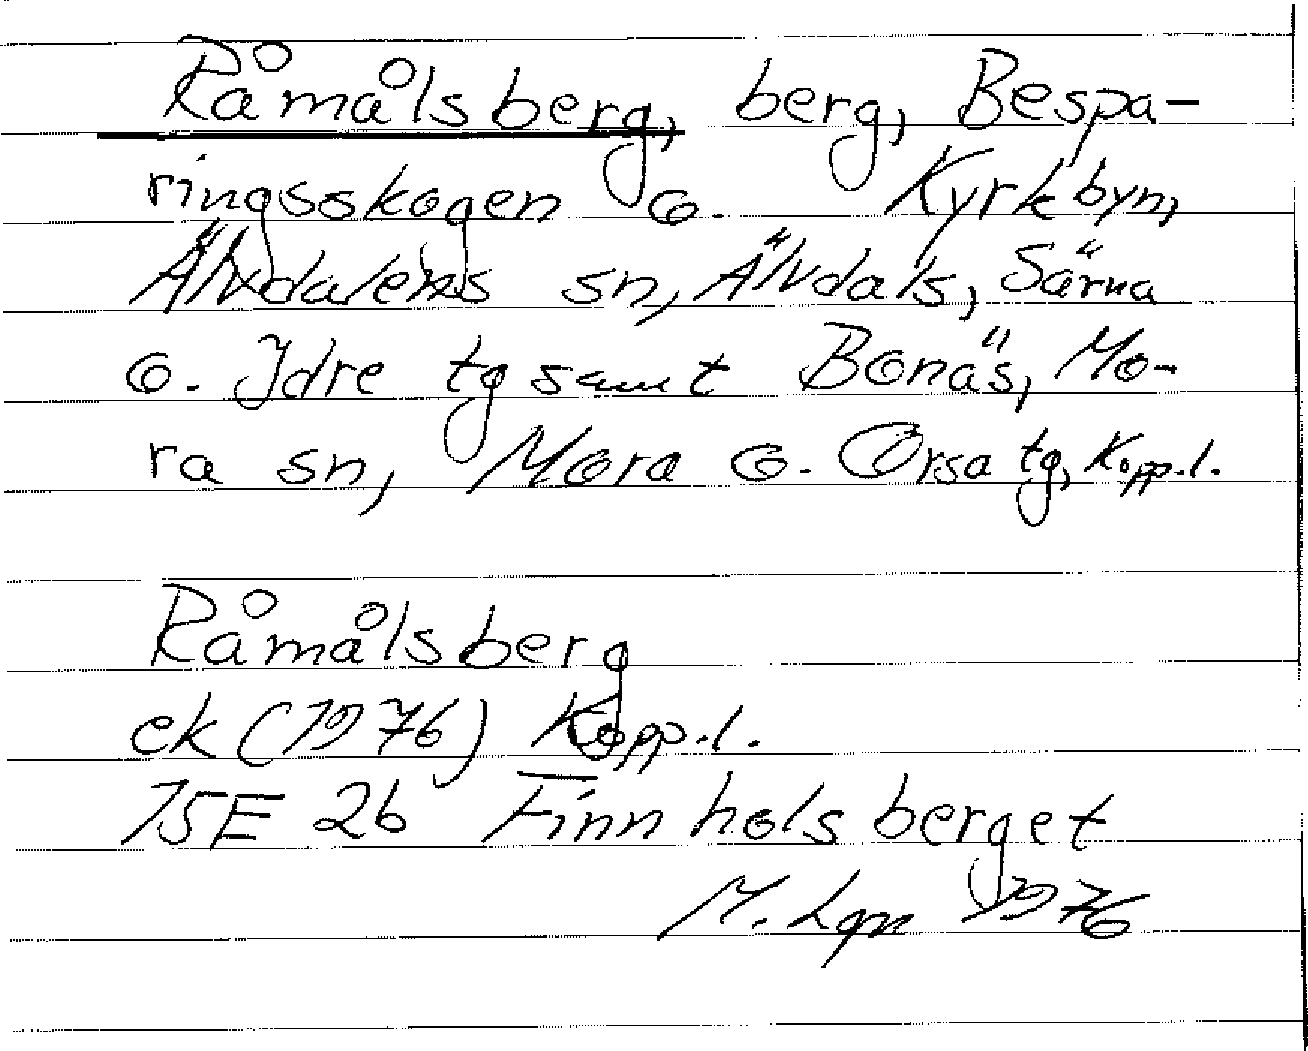 Råmålsberg, berg, Bespa-
ringsskogen o. Kyrkbyn,
Älvdalens sn, Älvdals, Särna
o. Idre tg samt Bonäs, Mo-
ra sn, Mora o. Orsa tg, Kopp.l.
Råmålsberg
ek (1976) Kopp.l.
15E 2b Finnholsberget
M. Lgn 1976